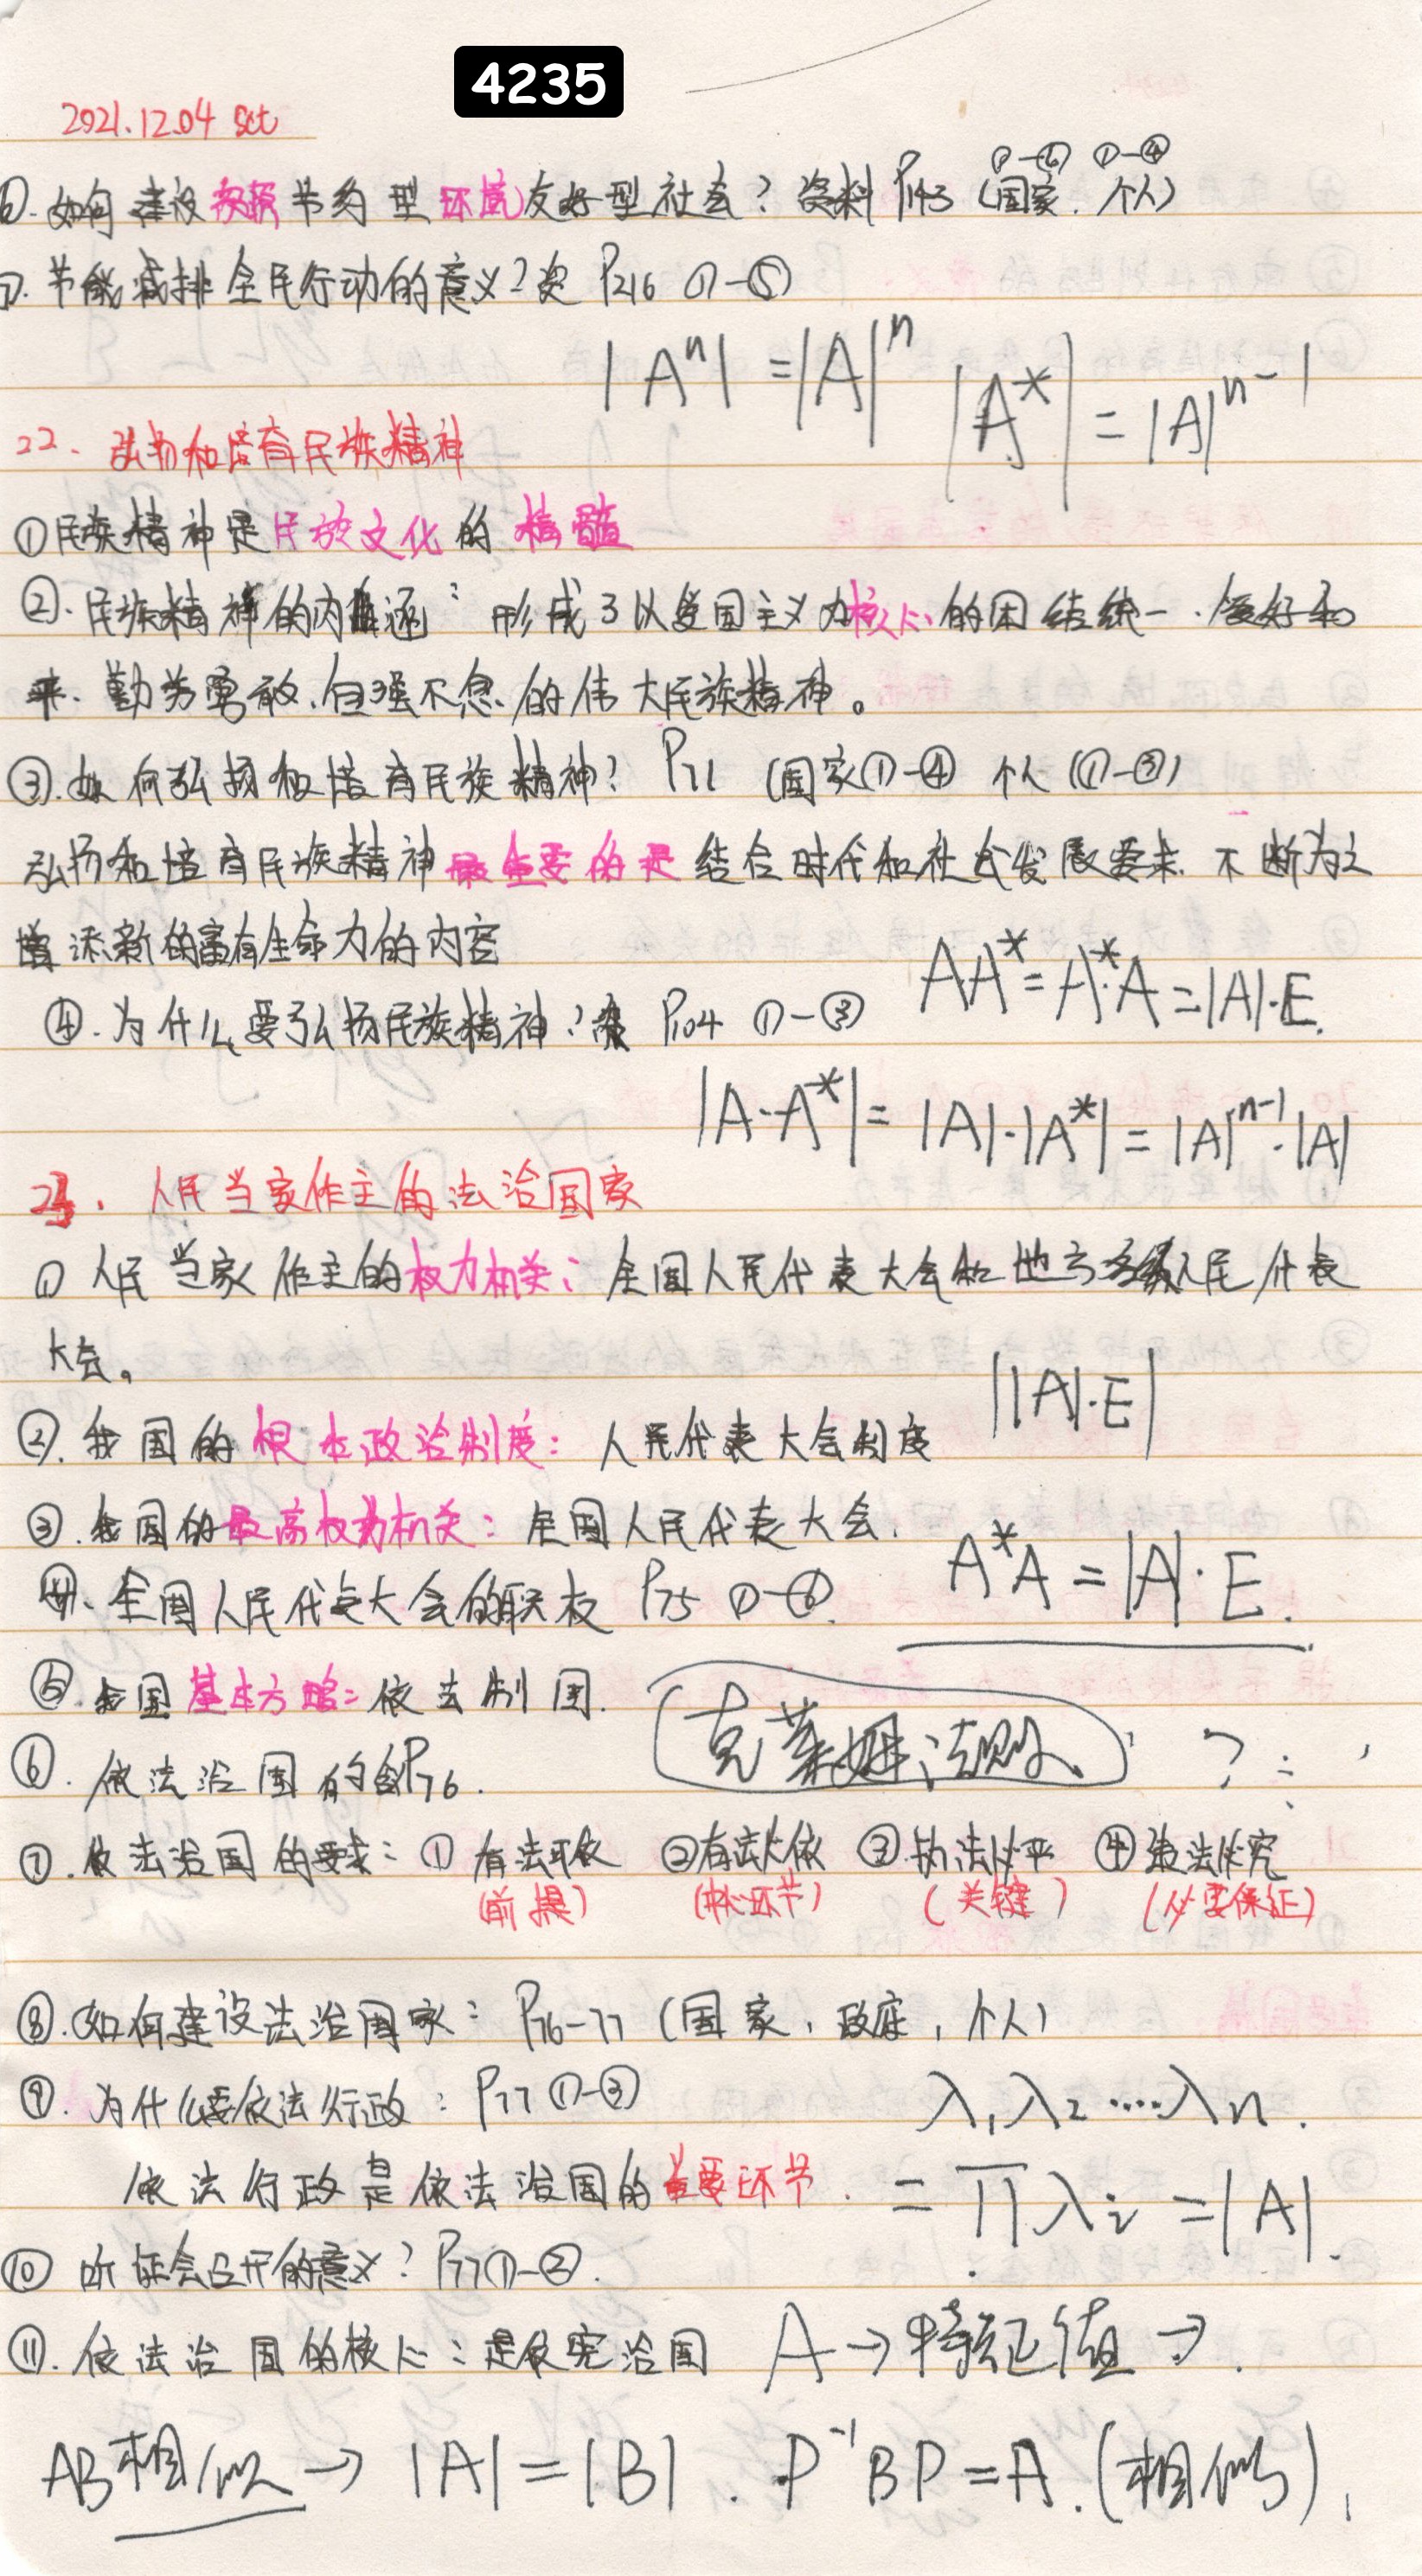 4235
2021.12.04 sct
⑥.如何建设资源节约型环境友好型社会?资料P143(国家.个人)
⑦.节能减排全民行动的意义?资P216 ①-⑤
|Aⁿ|=|A|ⁿ |A*|=|A|ⁿ⁻¹
22、弘扬和培育民族精神
①民族精神是民族文化的精髓
②.民族精神的内涵:形成了以爱国主义为核心的团结统一.爱好和
平.勤劳勇敢.自强不息的伟大民族精神。
③.如何弘扬和培育民族精神?P71(国家①-④ 个人(①-③)
弘扬和培育民族精神最重要的是结合时代和社会发展要求.不断为之
增添新的富有生命力的内容
AA*=A*·A=|A|·E.
④.为什么要弘扬民族精神?资P104 ①-③
|A·A*|=|A|·|A*|=|A|ⁿ⁻¹·|A|
23.人民当家作主的法治国家
①人民当家作主的权力机关:全国人民代表大会和地方各级人民代表
大会。
||A|·E|
②.我国的根本政治制度:人民代表大会制度
③.我国的最高权力机关:全国人民代表大会.
A*A=|A|·E.
④.全国人民代表大会的职权P75
⑤.我国基本方略:依法制国.
克莱姆法则 ?
⑥.依法治国的含P76.
⑦.依法治国的要求:①有法可依 ②有法必依 ③.执法必严 ④违法必究
(前提) (中心环节) (关键) (必要保证)
⑧.如何建设法治国家:P76-77(国家,政府,个人)
⑨.为什么要依法行政:P77①-③
λ₁λ₂····λn.
依法行政是依法治国的重要环节.
=∏λi=|A|.
⑩听证会召开的意义?P77①-②.
⑪.依法治国的核心:是依宪治国
A→特征值→.
AB相似→|A|=|B|.P⁻¹BP=A.(相似).